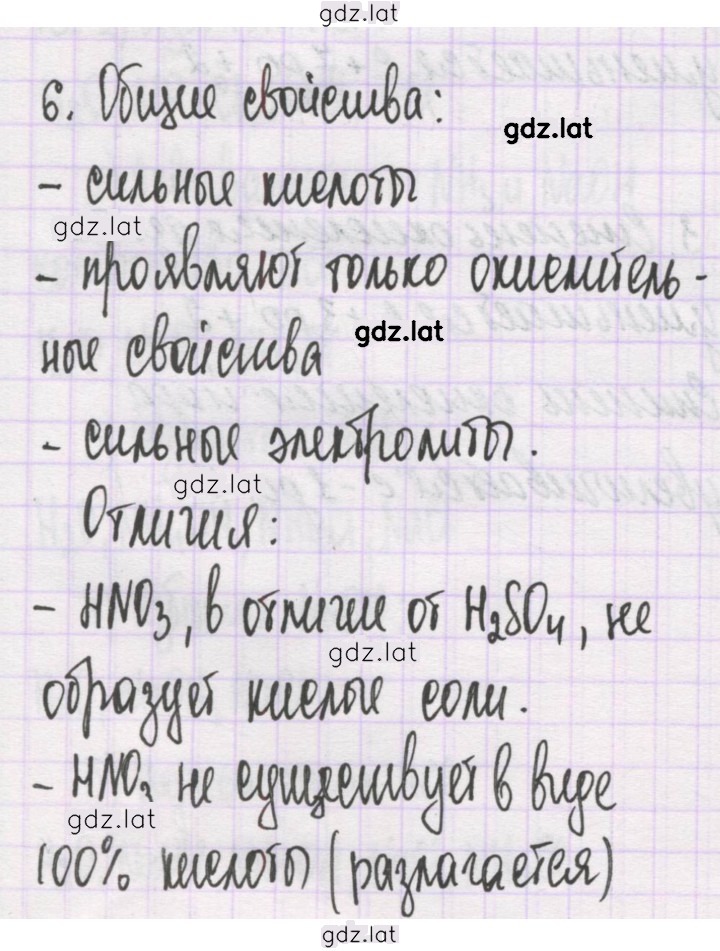 gdz.lat
6. Общие свойства:
gdz.lat
- сильные кислоты
gdz.lat
- проявляют только окислитель-
gdz.lat
ные свойства
- сильные электролиты.
gdz.lat
Отличия:
- HNO3, в отличие от H2SO4, не
gdz.lat
образует кислые соли.
- HNO3 не существует в виде
gdz.lat
100% кислоты (разлагается)
gdz.lat